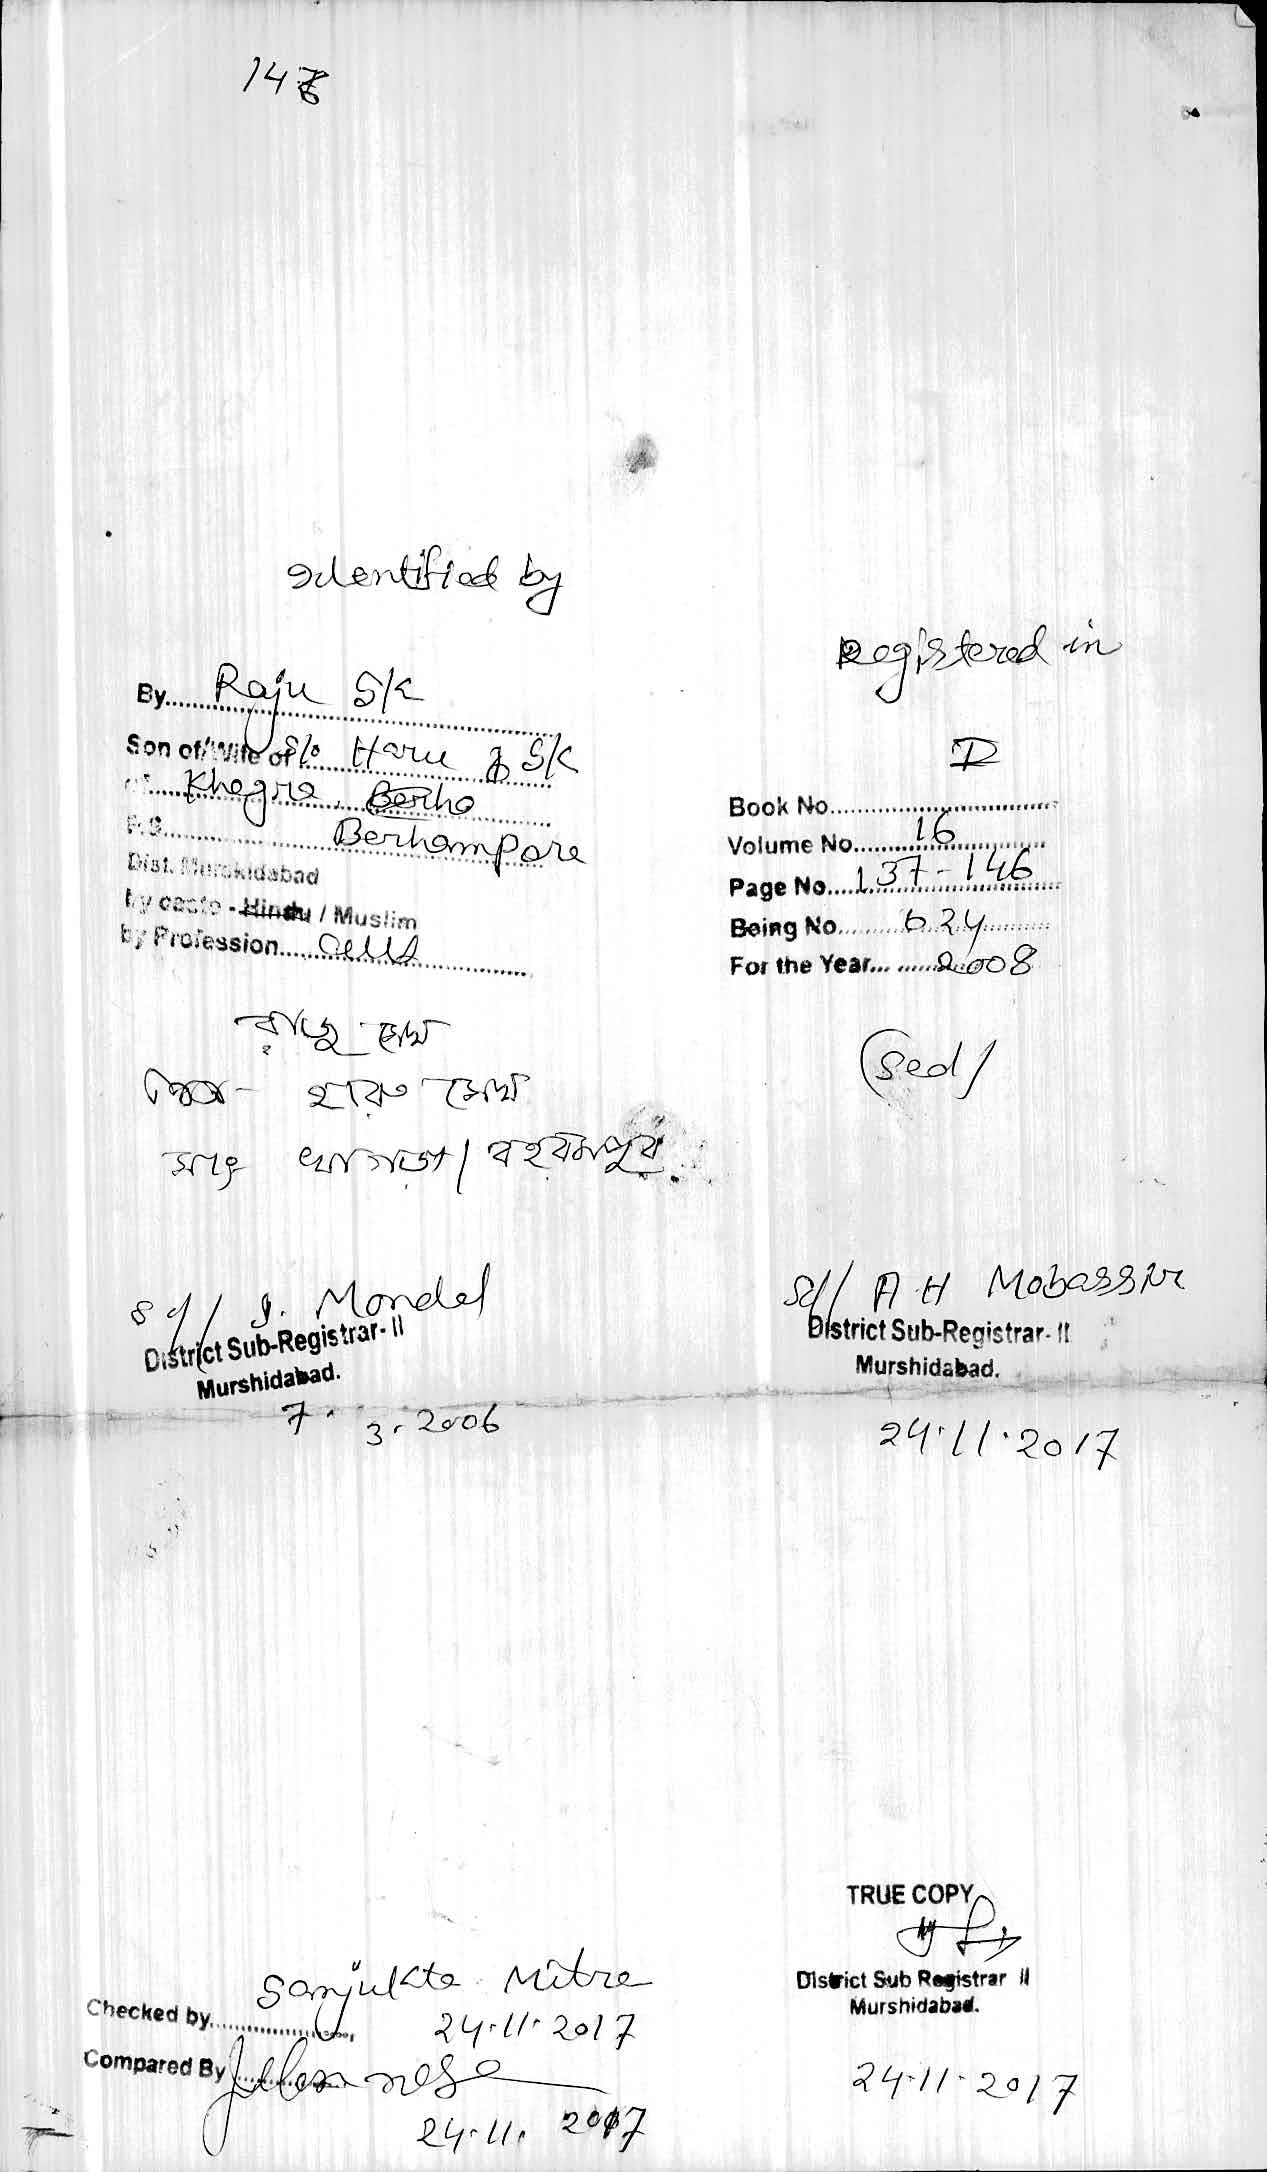 146
Identified by
By Raju Sk
Son of/Wife of S/o Haru Sk
of Khagra, Berho
P.S. Berhampore
Dist. Murshidabad
by caste - Hindu / Muslim
by Profession
রাজু সেখ
পিতা - হারু সেখ
সাং খাগড়া / বহরমপুর
Sd// J. Mondal
District Sub-Registrar-II
Murshidabad.
7. 3. 2006
Registered in
I
Book No
Volume No 16
Page No 137-146
Being No 624
For the Year 2008
(Sed/
Sd// A H Mobassir
District Sub-Registrar-II
Murshidabad.
24.11.2017
Checked by Sanjukta Mitra
24.11.2017
Compared By
24.11.2017
TRUE COPY
District Sub Registrar II
Murshidabad.
24.11.2017